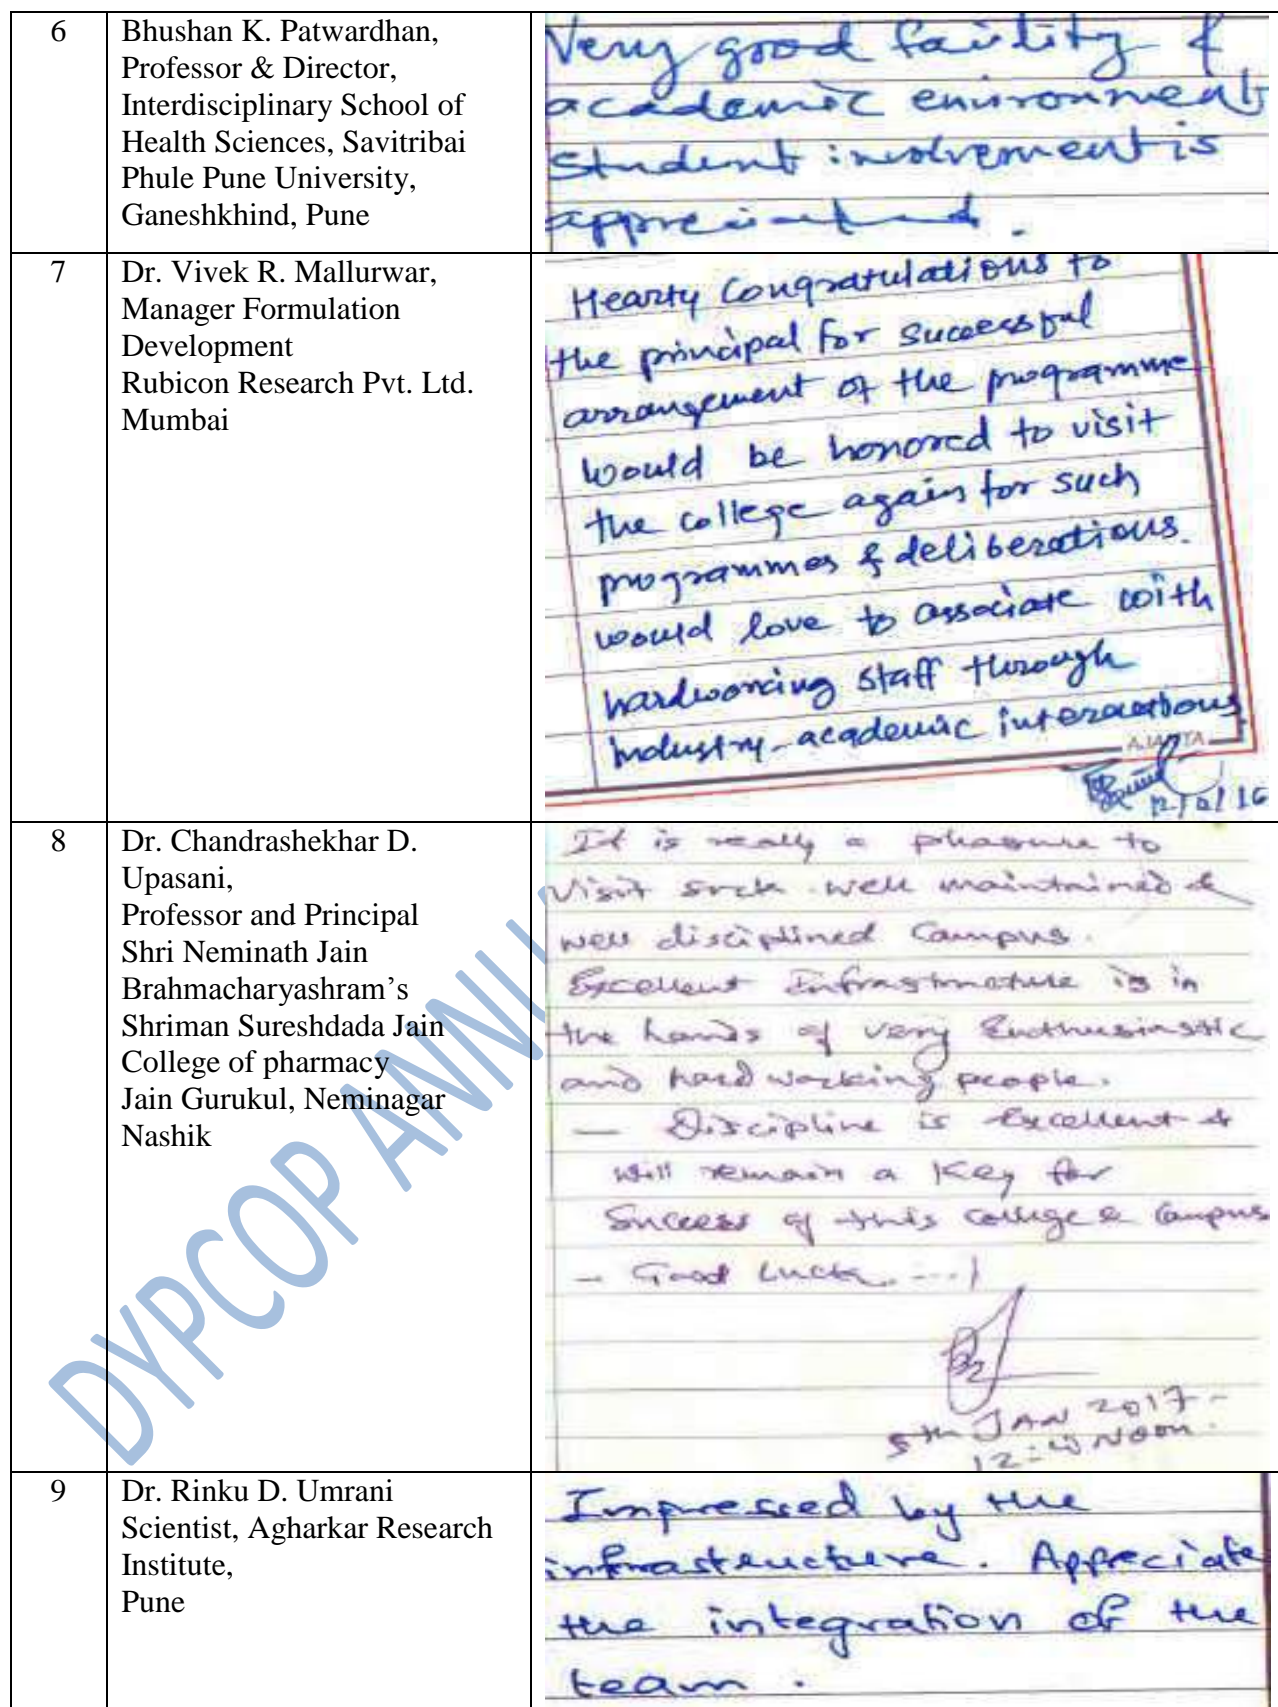 6
Bhushan K. Patwardhan,
Professor & Director,
Interdisciplinary School of
Health Sciences, Savitribai
Phule Pune University,
Ganeshkhind, Pune
Very good facility &
academic environment
student involvement is
appreciated.
7
Dr. Vivek R. Mallurwar,
Manager Formulation
Development
Rubicon Research Pvt. Ltd.
Mumbai
Hearty Congratulations to
the principal for successful
arrangement of the programme
would be honored to visit
the college again for such
programmes & deliberations.
would love to associate with
hardworking staff through
industry-academic interactions
AJANTA
8
Dr. Chandrashekhar D.
Upasani,
Professor and Principal
Shri Neminath Jain
Brahmacharyashram’s
Shriman Sureshdada Jain
College of pharmacy
Jain Gurukul, Neminagar
Nashik
It is really a pleasure to
Visit such well maintained &
well disciplined Campus.
Excellent Infrastructure is in
the hands of very Enthusiastic
and hard working people.
— Discipline is Excellent &
will remain a Key for
Success of this college & Campus
- Good Luck....!
5th JAN 2017-
Noon.
9
Dr. Rinku D. Umrani
Scientist, Agharkar Research
Institute,
Pune
Impressed by the
infrastructure. Appreciate
the integration of the
team.
DYPCOP